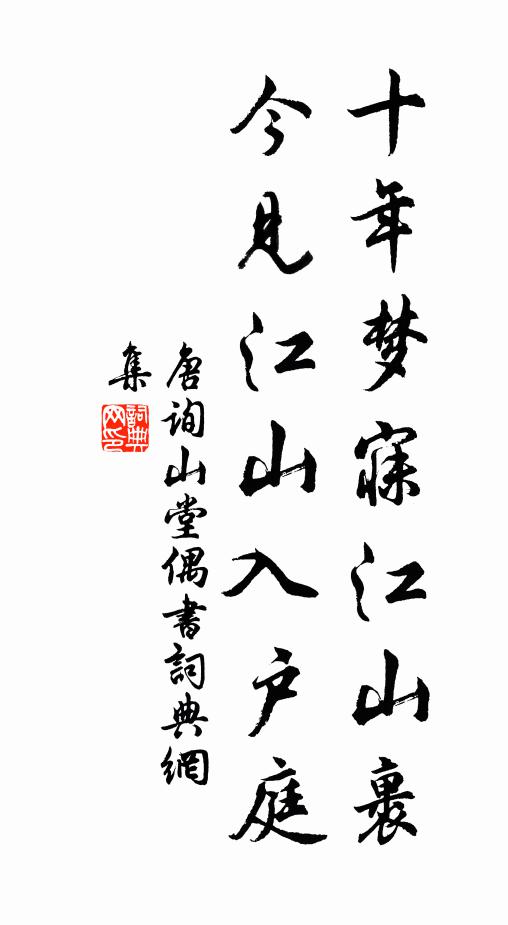 十年梦寐江山裹
今见江山入户庭
唐询山堂偶書詞典網
集
詞典網印